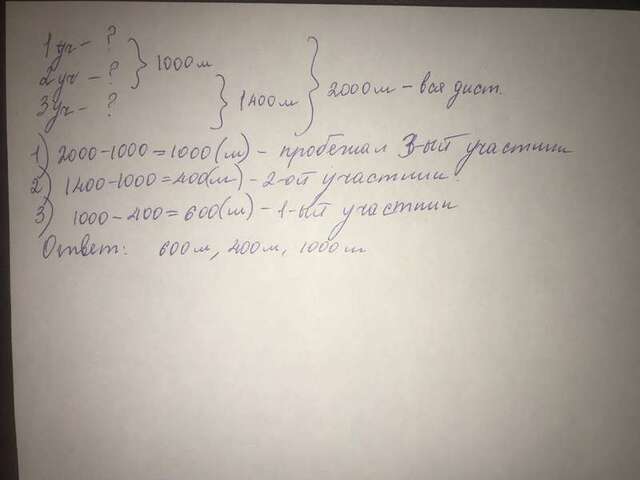 1 уч - ? } 1000 м
2 уч - ? } 1400 м } 2000 м - вся дист.
3 уч - ?
1) 2000-1000=1000(м) - пробежал 3-ый участник
2) 1400-1000=400(м) - 2-ой участник.
3) 1000-400=600(м) - 1-ый участник
Ответ: 600м, 400м, 1000м